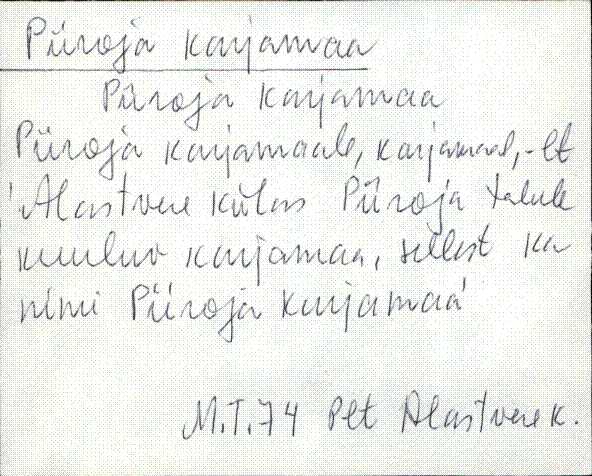 Piiroja karjamaa
Piiroja karjamaa
Piiroja karjamaale, karjamaal, -lt
'Alastvere külas Piiroja talule
kuuluv karjamaa, sellest ka
nimi Piiroja karjamaa'
M.T.74 Plt Alastvere k.